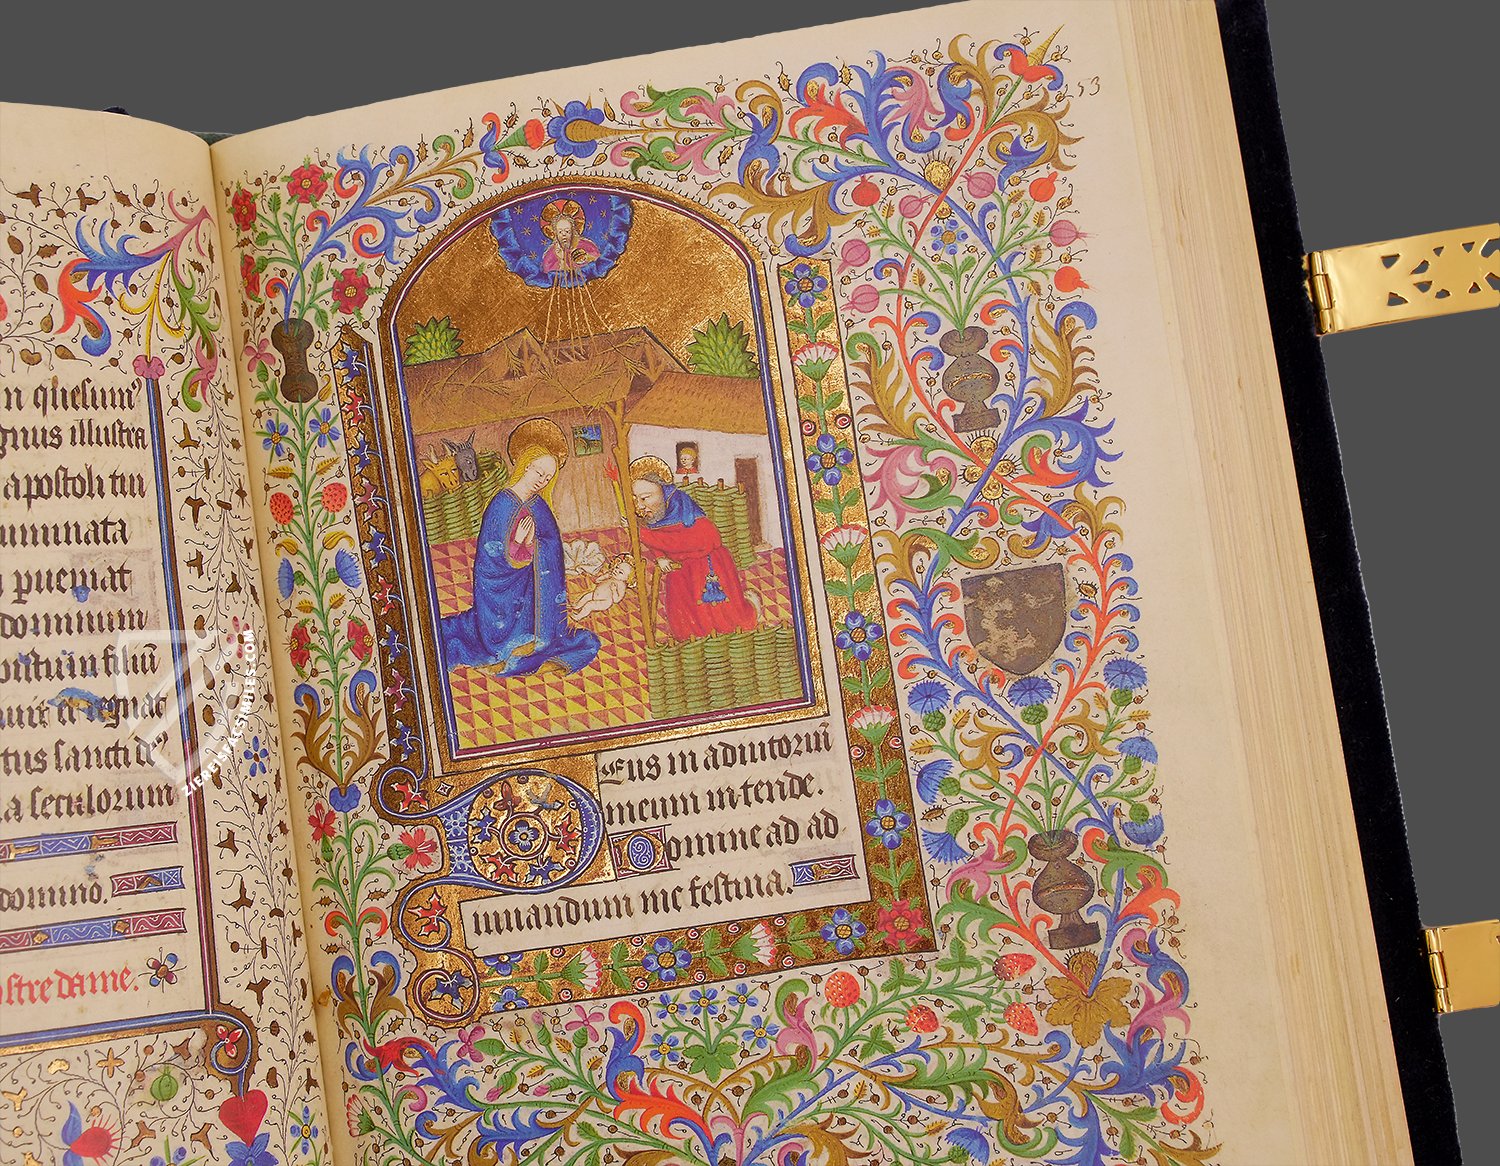 n quesum9
gnus illustra
apostoli tui
uminata
ueniat
dominum
filiū
et regnat
tus sancti de9
la seculorum
domino.
stre dame.
53
Deus in adiutoriū
meum intende.
Domine ad ad
iuuandum me festina.
ZIEREIS FACSIMILES.COM